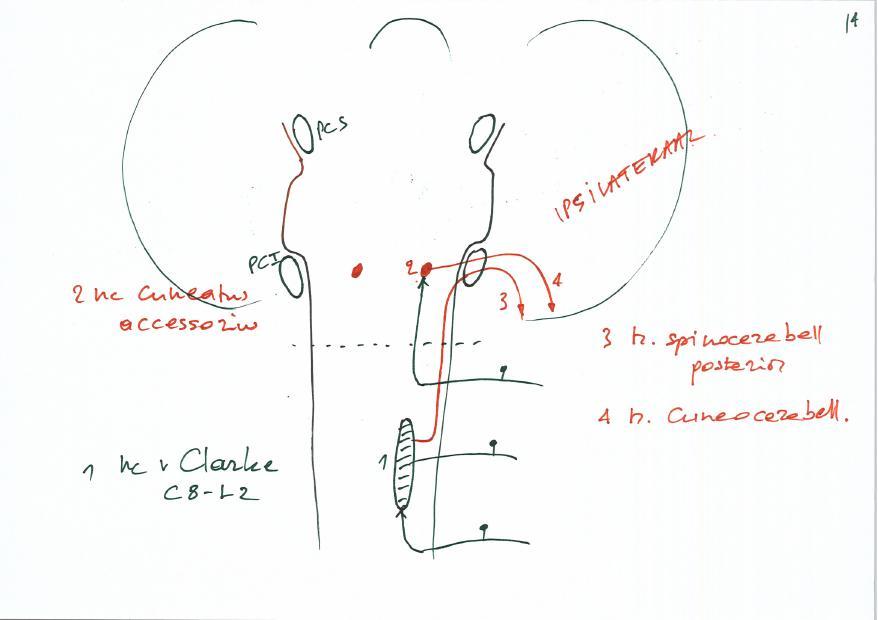 14
PCS
IPSILATERAAL
PCI
2
4
3
2 nc cuneatus
accessorius
3 tr. spinocerebell
posterior
4 tr. Cuneocerebell.
1
1 nc v Clarke
C8-L2